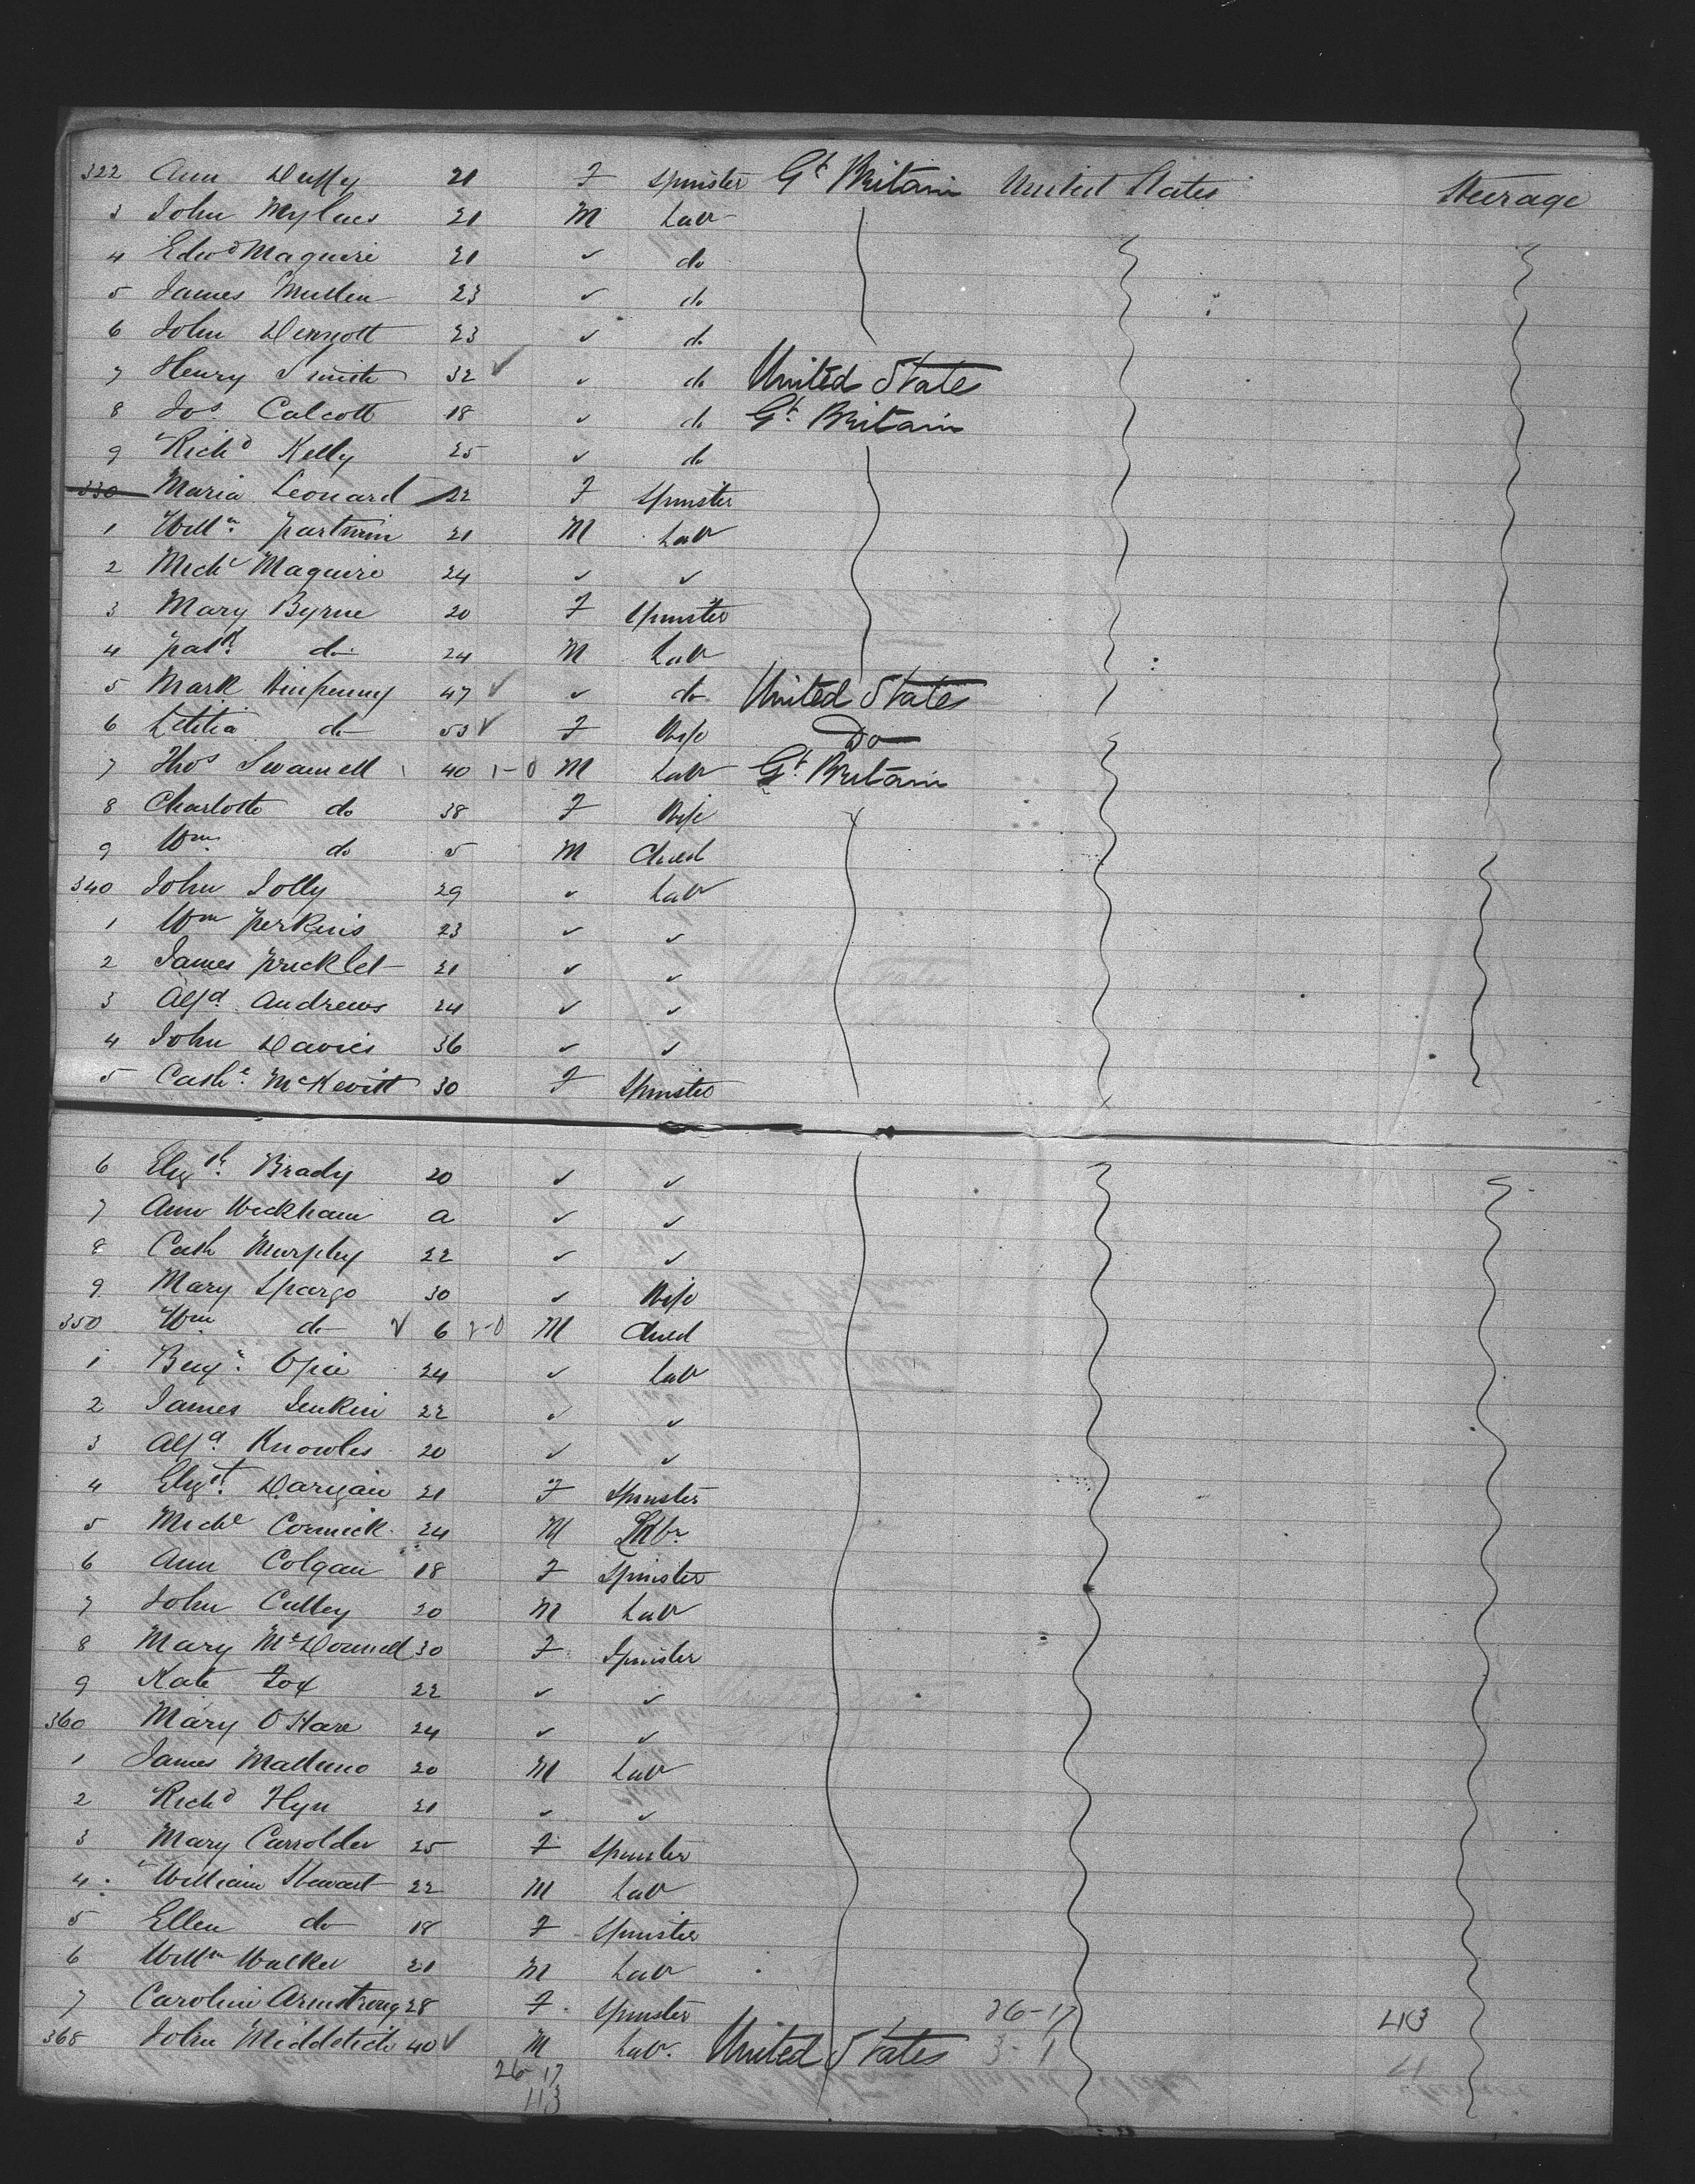 322 Ann Duffy 21 F Spinster Gt Britain United States Steerage
3 John Myles 21 M Lab
4 Edwd Maguire 21 " do
5 James Mullen 23 " do
6 John Dermott 23 " do
7 Henry Smith 32 ✓ " do United State
8 Jos. Calcott 18 " do Gt Britain
9 Richd Kelly 25 " do
330 Maria Leonard 22 F Spinster
1 Willm 21 M Lab
2 Michl Maguire 24 " "
3 Mary Byrne 20 F Spinster
4 Patk do 24 M Lab
5 Mark 47 ✓ " do United States
6 Letitia do 53 ✓ F Wife Do
7 Thos Swannell 40 1-0 M Lab Gt Britain
8 Charlotte do 38 F Wife
9 Wm do 5 M Child
340 John Jolly 29 " Lab
1 Wm Perkins 23 " "
2 James Pricklet 21 " "
3 Alfd Andrews 24 " "
4 John Davies 36 " "
5 Cathe McKevitt 30 F Spinster
6 Elizth Brady 20 " "
7 Ann Wickham a " "
8 Cath Murphy 22 " "
9 Mary Spargo 30 " Wife
350 Wm do ✓ 6 M Child
1 Benjn Opie 24 " Lab
2 James Jenkin 22 " "
3 Alfd Knowles 20 " "
4 Elizt Dargan 21 F Spinster
5 Michl Cormick 24 M Labr
6 Ann Colgan 18 F Spinster
7 John Culley 20 M Lab
8 Mary McDonnell 30 F Spinster
9 Kate Fox 22 " "
360 Mary O'Hare 24 " "
1 James 20 M Lab
2 Richd 21 " "
3 Mary 25 F Spinster
4 William Stewart 22 M Lab
5 Ellen do 18 F Spinster
6 Willm Walker 21 M Lab
7 Caroline Armstrong 28 F Spinster 26-17 43
368 John 40 ✓ M Lab. United States 3-1 4
26 17
43